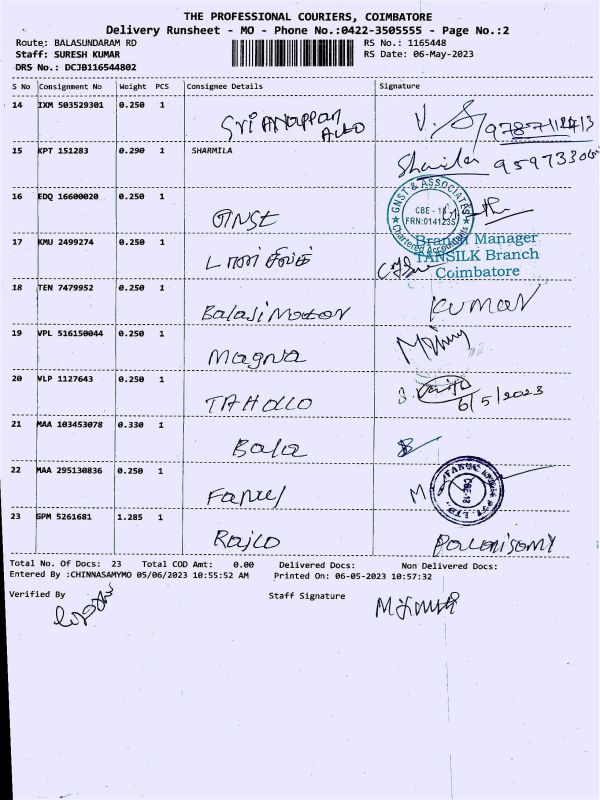 THE PROFESSIONAL COURIERS, COIMBATORE
Delivery Runsheet - MO - Phone No.:0422-3505555 - Page No.:2
Route: BALASUNDARAM RD
RS No.: 1165448
Staff: SURESH KUMAR
RS Date: 06-May-2023
DRS No.: DCJB116544802
S No Consignment No Weight PCS Consignee Details Signature
14 IXM 503529301 0.250 1 Sri Anuppan Auto
15 KPT 151283 0.290 1 SHARMILA Sharmila
16 EDQ 16600020 0.250 1 GNST
GNST & ASSOCIATES
CBE - 18
FRN:014123S
Chartered Accountants
17 KMU 2499274 0.250 1
Branch Manager
TANSILK Branch
Coimbatore
18 TEN 7479952 0.250 1 Balaji Motor KUMAR
19 VPL 516150044 0.250 1 Magna
20 VLP 1127643 0.250 1 6/5/2023
21 MAA 103453078 0.330 1 Bala
22 MAA 295130836 0.250 1 Fanuc
FANUC INDIA PVT. LTD.
CBE-18
23 GPM 5261681 1.285 1 Palanisamy
Total No. Of Docs: 23 Total COD Amt: 0.00 Delivered Docs: Non Delivered Docs:
Entered By :CHINNASAMYMO 05/06/2023 10:55:52 AM Printed On: 06-05-2023 10:57:32
Verified By Staff Signature